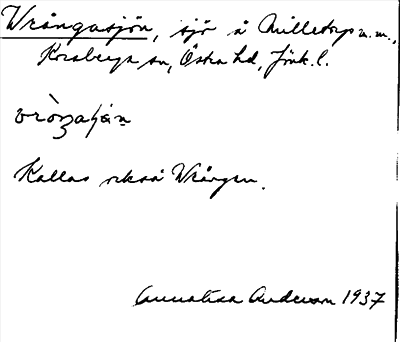 Wrångasjön, sjö å Milletorp m.m.,
Korsberga sn, Östra hd, Jönk. l.
Kallas också Wrången.
Annalisa Anderson 1937